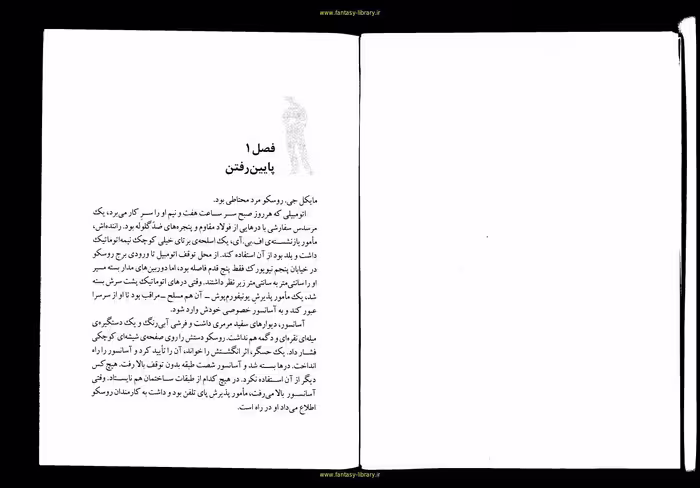 www.fantasy-library.ir
فصل ۱
پایین‌رفتن
مایکل جی. روسکو مرد محتاطی بود.
اتومبیلی که هرروز صبح سر ساعت هفت و نیم او را سر کار می‌برد، یک
مرسدس سفارشی با درهایی از فولاد مقاوم و پنجره‌های ضدّ گلوله بود. راننده‌اش،
مأمور بازنشسته‌ی اف.بی.آی، یک اسلحه‌ی برتای خیلی کوچک نیمه‌اتوماتیک
داشت و بلد بود از آن استفاده کند. از محل توقف اتومبیل تا ورودی برج روسکو
در خیابان پنجم نیویورک فقط پنج قدم فاصله بود، اما دوربین‌های مدار بسته مسیر
او را سانتی‌متر به سانتی‌متر زیر نظر داشتند. وقتی درهای اتوماتیک پشت سرش بسته
شد، یک مأمور پذیرشِ یونیفورم‌پوش – آن هم مسلح – مراقب بود تا او از سرسرا
عبور کند و به آسانسور خصوصی خودش وارد شود.
آسانسور، دیوارهای سفید مرمری داشت و فرشی آبی‌رنگ و یک دستگیره‌ی
میله‌ای نقره‌ای و دگمه هم نداشت. روسکو دستش را روی صفحه‌ی شیشه‌ای کوچکی
فشار داد. یک حسگر، اثر انگشتش را خواند، آن را تأیید کرد و آسانسور را راه
انداخت. درها بسته شد و آسانسور شصت طبقه بدون توقف بالا رفت. هیچ‌کس
دیگر از آن استفاده نکرد. در هیچ کدام از طبقات ساختمان هم نایستاد. وقتی
آسانسور بالا می‌رفت، مأمور پذیرش پای تلفن بود و داشت به کارمندان روسکو
اطلاع می‌داد او در راه است.
www.fantasy-library.ir